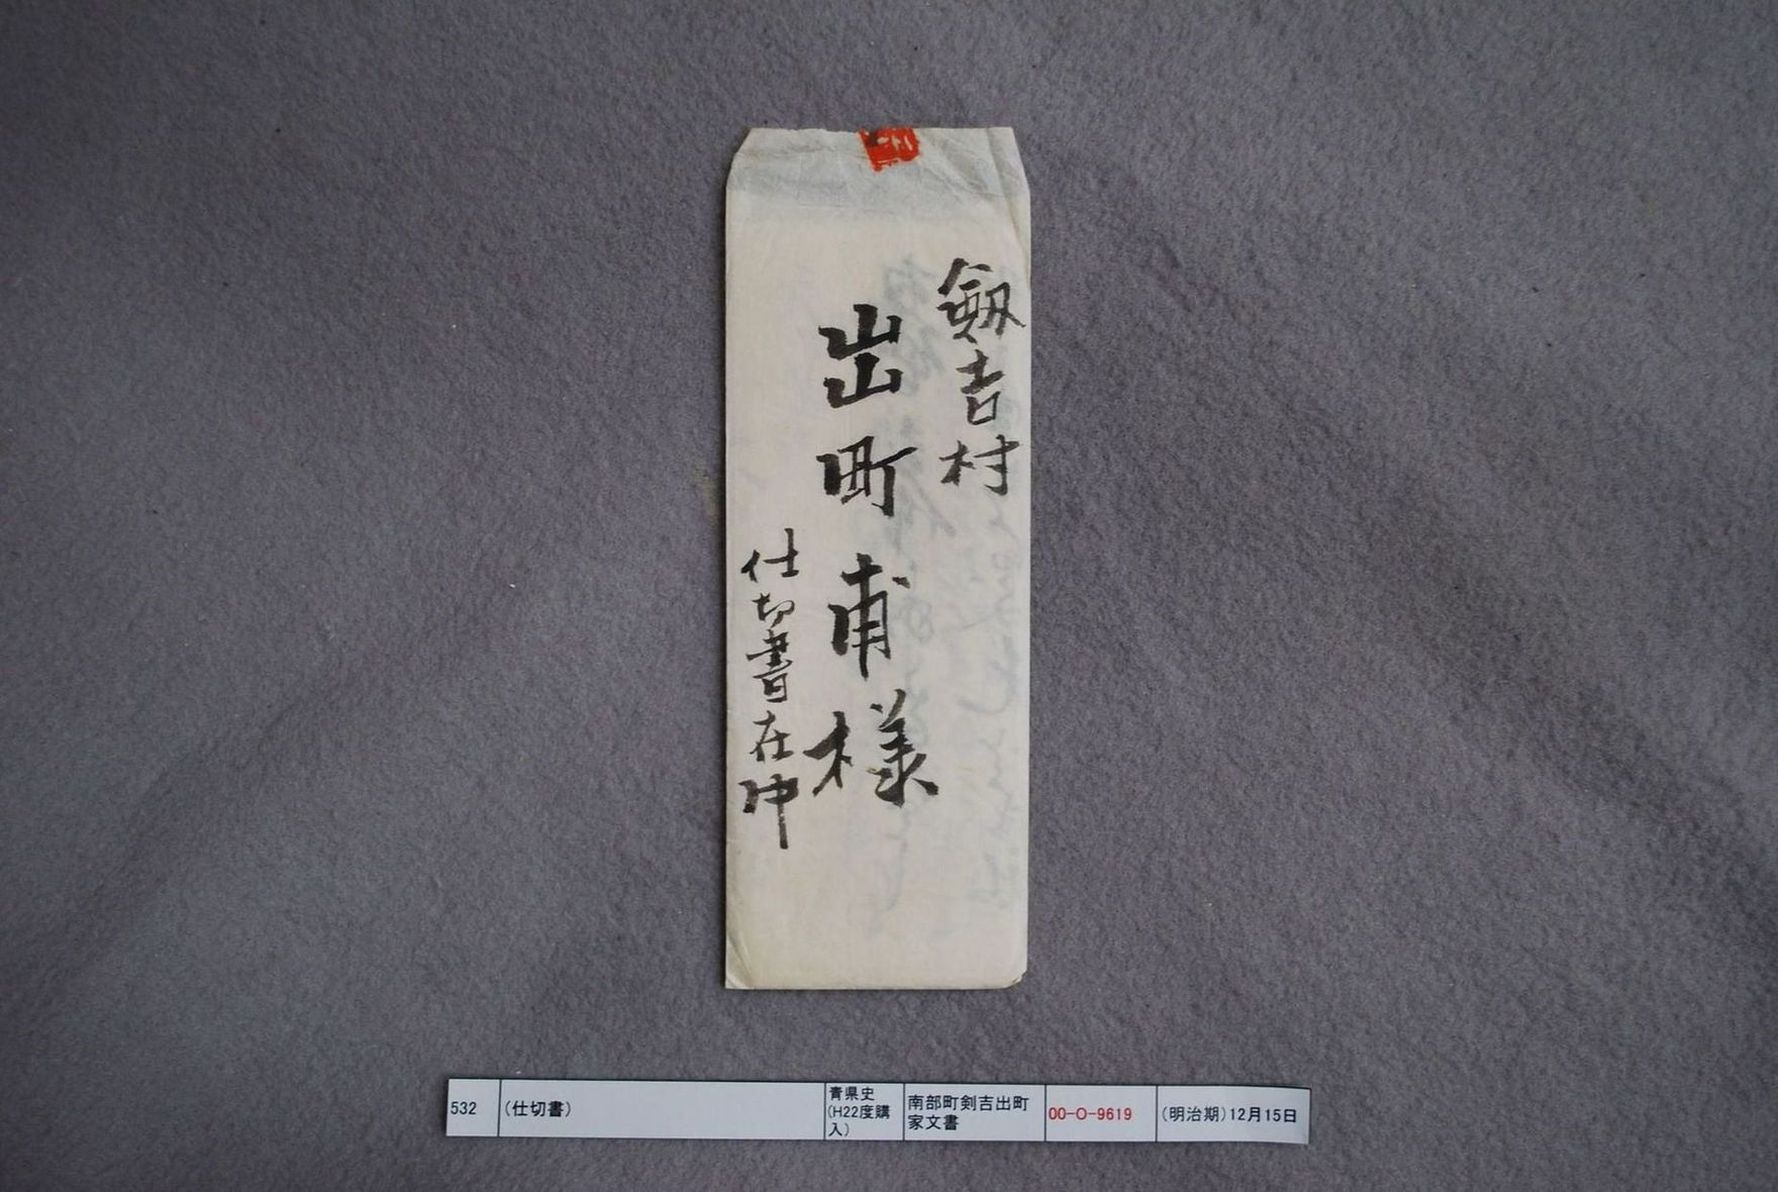 劔吉村
出町甫様
仕切書在中
532
(仕切書)
青県史
(H22度購
入)
南部町剣吉出町
家文書
00-O-9619
(明治期)12月15日